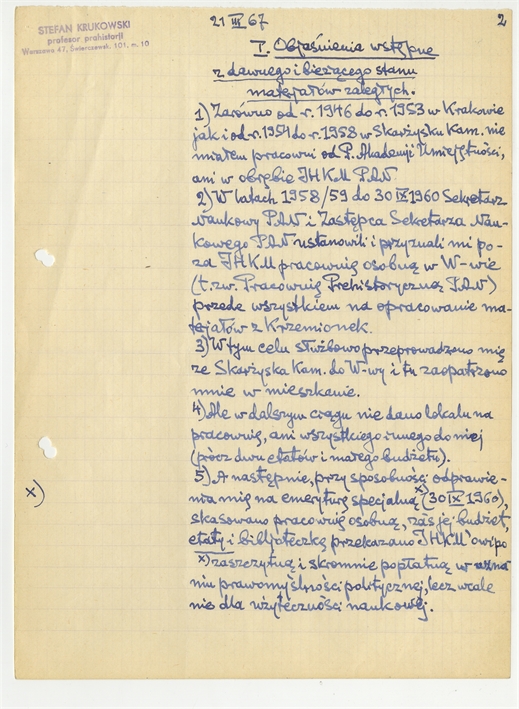 STEFAN KRUKOWSKI
profesor prahistorji
Warszawa 47, Świerczewsk. 101, m. 10
21 III 67
2
I. Objaśnienia wstępne
z dawnego i bieżącego stanu
materjałów zaległych.
1) Zarówno od r. 1946 do r. 1953 w Krakowie
jak i od r. 1954 do r. 1958 w Skarżysku Kam. nie
miałem pracowni od P. Akademji Umiejętności,
ani w obrębie IHKM PAN
2) W latach 1958/59 do 30 IX 1960 Sekretarz
Naukowy PAN i Zastępca Sekretarza Nau-
kowego PAN ustanowili i przyznali mi po-
za IHKM pracownię osobną w W-wie
(t. zw. Pracownię Prehistoryczną PAN)
przede wszystkiem na opracowanie ma-
terjałów z Krzemionek.
3) W tym celu służbowo przeprowadzono mię
ze Skarżyska Kam. do W-wy i tu zaopatrzono
mnie w mieszkanie.
4) Ale w dalszym ciągu nie dano lokalu na
pracownię, ani wszystkiego innego do niej
(prócz dwu etatów i małego budżetu).
5) A następnie, przy sposobności odprawie-
nia mię na emeryturę specjalną x) (30 IX 1960),
x)
skasowano pracownię osobną, zaś jej budżet,
etaty i bibljoteczkę przekazano IHKM'owi po
x) zaszczytną i skromnie popłatną w uzna-
niu prawomyślności politycznej, lecz wcale
nie dla użyteczności naukowej.